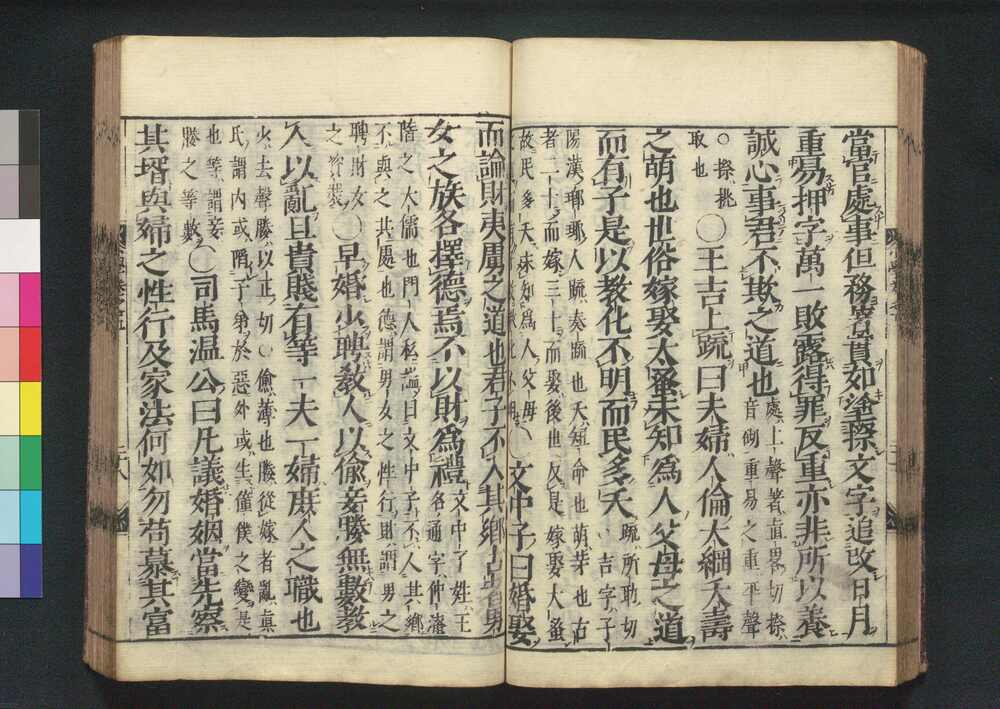 當官處事但務著實如塗擦文字追改日月
重易押字萬一敗露得罪反重亦非所以養
誠心事君不欺之道也 處上聲著直畧切擦
音刷重易之重平聲
○擦挑
取也 ○王吉上疏曰夫婦人倫大綱夭壽
之萌也世俗嫁娶太蚤未知爲人父母之道
而有子是以教化不明而民多夭 疏所助切
○吉字子
陽漢瑯琊人疏奏疏也夭短命也萌芽也古
者二十而嫁三十而娶後世反是嫁娶大蚤
故民多夭未知爲人父母
○文中子曰婚娶
而論財夷虜之道也君子不入其鄉古者男
女之族各擇德焉不以財爲禮 文中子姓王
名通字仲淹
隋之大儒也門人私謚曰文中子不入其鄉
不與之共處也德謂男女之性行財謂男之
聘財女
之資裝 ○早婚少聘教人以偷妾媵無數教
人以亂且貴賤有等一夫一婦庶人之職也
少去聲媵以正切○偷薄也媵從嫁者亂眞
氏謂内或陷子弟於惡外或生僮僕之變是
也等謂妾
媵之等數 ○司馬温公曰凡議婚姻當先察
其壻與婦之性行及家法何如勿苟慕其富